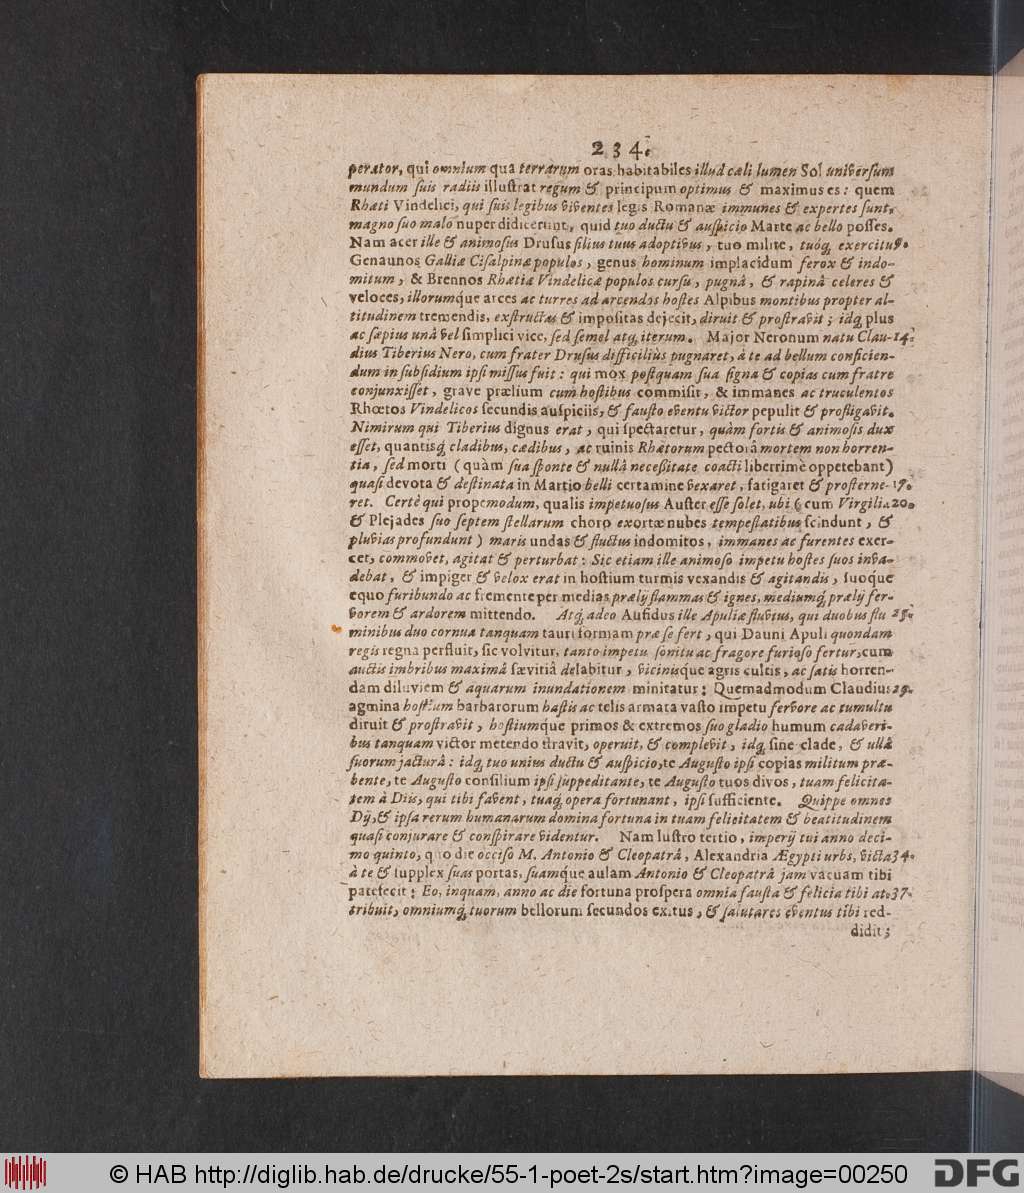 234.
perator, qui omnium qua terrarum oras habitabiles illud cæli lumen Sol universum
mundum suis radiis illustrat regum & principum optimus & maximus es: quem
Rhæti Vindelici, qui suis legibus viventes legis Romanæ immunes & expertes sunt,
magno suo malo nuper didicerunt, quid tuo ductu & auspicio Marte ac bello posses.
Nam acer ille & animosus Drusus filius tuus adoptivus, tuo milite, tuóq; exercitu 9.
Genaunos Galliæ Cisalpinæ populos, genus hominum implacidum ferox & indo-
mitum, & Brennos Rhætiæ Vindelicæ populos cursu, pugnâ, & rapinâ celeres &
veloces, illorumque arces ac turres ad arcendos hostes Alpibus montibus propter al-
titudinem tremendis, exstructas & impositas dejecit, diruit & prostravit; idq; plus
ac sæpius unâ vel simplici vice, sed semel atq; iterum. Major Neronum natu Clau- 14.
dius Tiberius Nero, cum frater Drusus difficiliùs pugnaret, à te ad bellum conficien-
dum in subsidium ipsi missus fuit: qui mox postquam sua signa & copias cum fratre
conjunxisset, grave prælium cum hostibus commisit, & immanes ac truculentos
Rhœtos Vindelicos secundis auspiciis, & fausto eventu victor pepulit & profligavit.
Nimirum qui Tiberius dignus erat, qui spectaretur, quàm fortis & animosis dux
esset, quantisq; cladibus, cædibus, ac ruinis Rhætorum pectora mortem non horren-
tia, sed morti (quàm sua sponte & nullâ necessitate coacti liberrimè oppetebant)
quasi devota & destinata in Martio belli certamine vexaret, fatigaret & prosterne- 19.
ret. Certè qui propemodum, qualis impetuosus Auster esse solet, ubi (cum Virgilia 20.
& Plejades suo septem stellarum choro exortæ nubes tempestatibus scindunt, &
pluvias profundunt) maris undas & fluctus indomitos, immanes ac furentes exer-
cet, commovet, agitat & perturbat: Sic etiam ille animoso impetu hostes suos inva-
debat, & impiger & velox erat in hostium turmis vexandis & agitandis, suoque
equo furibundo ac fremente per medias prælij flammas & ignes, mediumq; prælij fer-
vorem & ardorem mittendo. Atq; adeo Aufidus ille Apuliæ fluvius, qui duobus flu 25.
minibus duo cornua tanquam tauri formam præ se fert, qui Dauni Apuli quondam
regis regna perfluit, sic volvitur, tanto impetu sonitu ac fragore furioso fertur, cum
auctis imbribus maximâ sævitiâ delabitur, vicinisque agris cultis, ac satis horren-
dam diluviem & aquarum inundationem minitatur: Quemadmodum Claudius 29.
agmina hostium barbarorum hastis ac telis armata vasto impetu fervore ac tumultu
diruit & prostravit, hostiumque primos & extremos suo gladio humum cadaveri-
bus tanquam victor metendo stravit, operuit, & complevit, idq; sine clade, & ullâ
suorum jacturâ: idq; tuo unius ductu & auspicio, te Augusto ipsi copias militum præ-
bente, te Augusto consilium ipsi suppeditante, te Augusto tuos divos, tuam felicita-
tem à Diis, qui tibi favent, tuaq; opera fortunant, ipsi sufficiente. Quippe omnes
Dij, & ipsa rerum humanarum domina fortuna in tuam felicitatem & beatitudinem
quasi conjurare & conspirare videntur. Nam lustro tertio, imperij tui anno deci-
mo quinto, quo die occiso M. Antonio & Cleopatrâ, Alexandria Ægypti urbs, victa 34.
à te & supplex suas portas, suamque aulam Antonio & Cleopatrâ jam vacuam tibi
patefecit: Eo, inquam, anno ac die fortuna prospera omnia fausta & felicia tibi at- 37.
tribuit, omniumq; tuorum bellorum secundos exitus, & salutares eventus tibi red-
didit;
© HAB http://diglib.hab.de/drucke/55-1-poet-2s/start.htm?image=00250
DFG